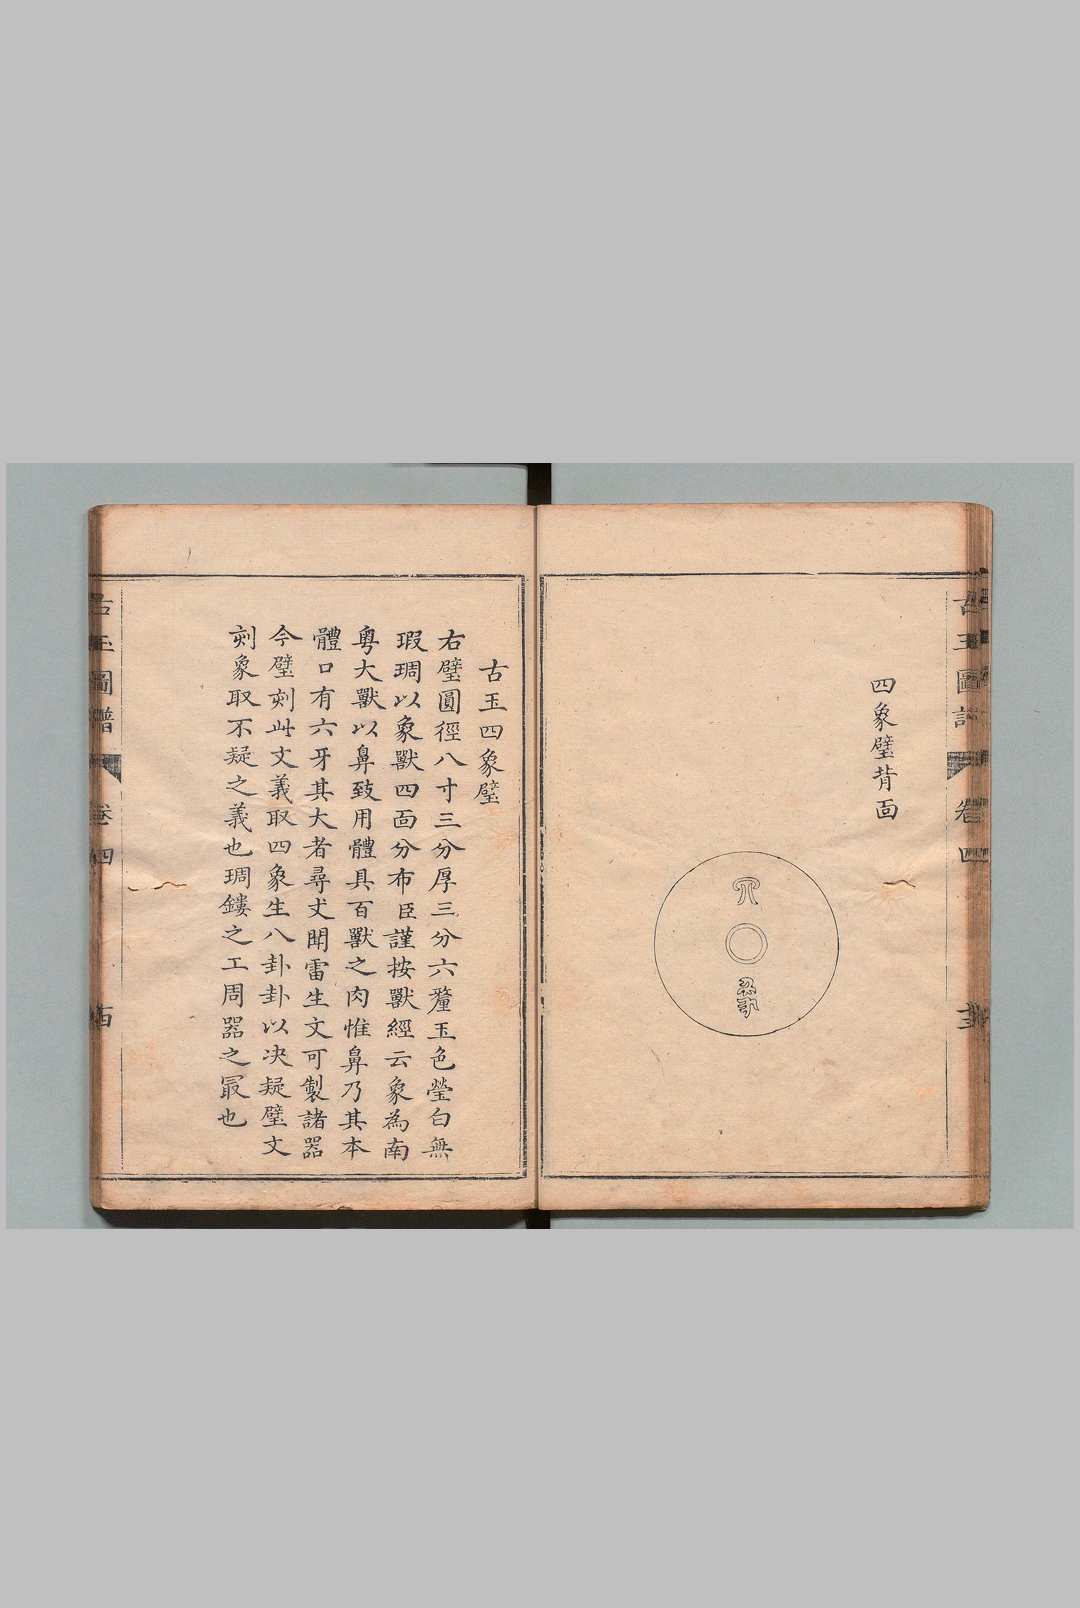 古玉圖譜 卷四
四象璧背面
四
象
古玉四象璧
右璧圓徑八寸三分厚三分六釐玉色瑩白無
瑕琱以象獸四面分布臣謹按獸經云象為南
粤大獸以鼻致用體具百獸之肉惟鼻乃其本
體口有六牙其大者尋丈聞雷生文可製諸器
今璧刻此文義取四象生八卦卦以决疑璧文
刻象取不疑之義也琱鏤之工周器之冣也
古玉圖譜 卷四